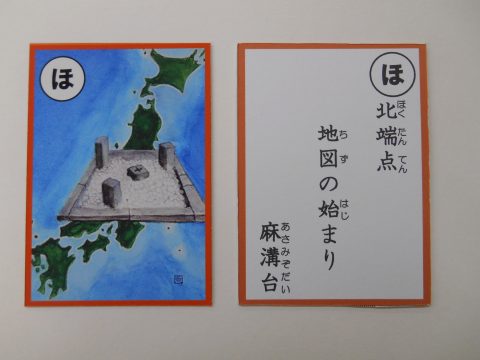 ほ
ほ
北端点
地図の始まり
麻溝台
ほくたんてん
ちず
はじ
あさみぞだい